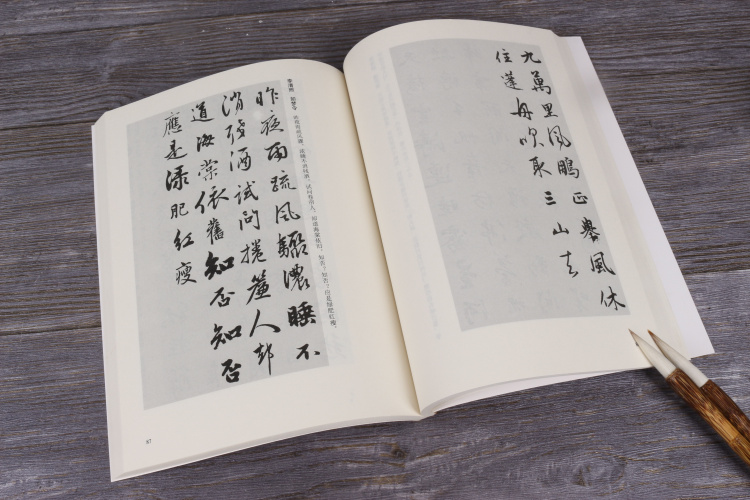 九萬里風鵬正舉風休
住蓬舟吹取三山去
李清照 如梦令 昨夜雨疏风骤，浓睡不消残酒。试问卷帘人，却道海棠依旧。知否？知否？应是绿肥红瘦。
昨夜雨疏風驟濃睡不
消殘酒試問捲簾人卻
道海棠依舊知否知否
應是綠肥紅瘦